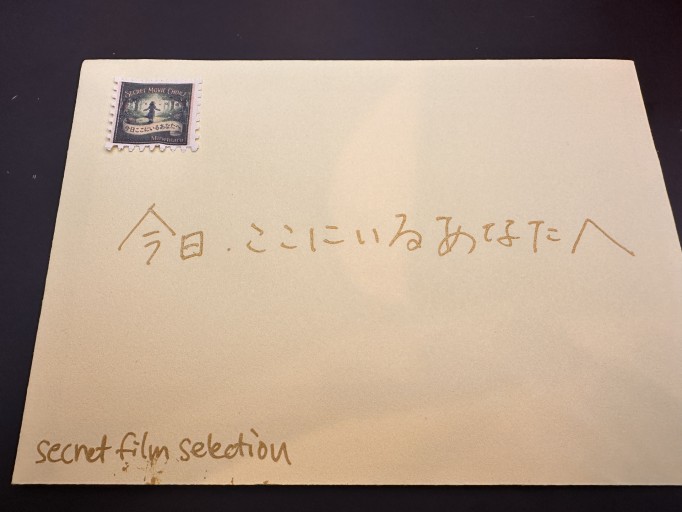 SECRET MOVIE CHOICE
今日ここにいるあなたへ
今日.ここにいるあなたへ
secret film selection